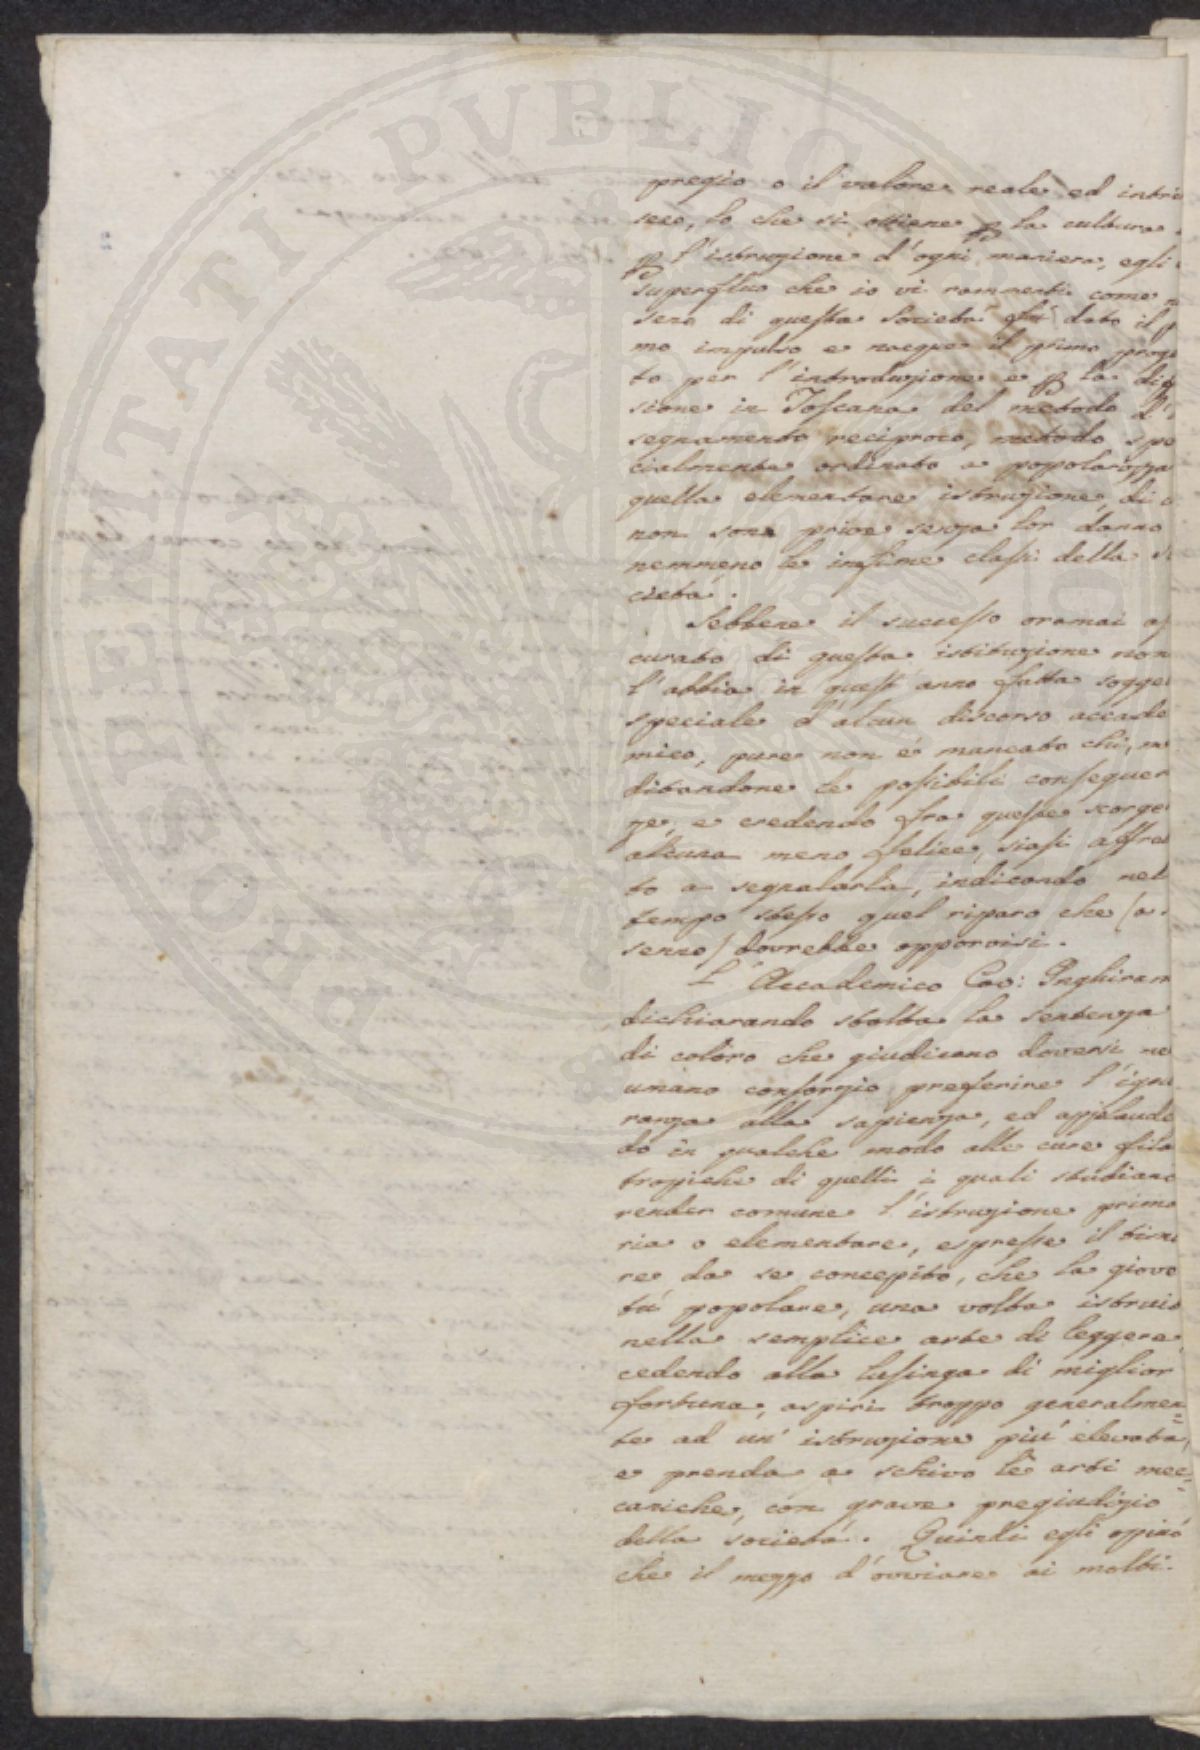 PROSPERITATI PVBLICAE
pregio o il valore reale ed intri
seco, lo che si ottiene p la cultura
p l'istruzione d'ogni maniera, egli
superfluo che io vi rammenti come
seno di questa Società fu dato il p
mo impulso e nacque il primo proge
to per l'introduzione e p la dif
sione in Toscana del metodo d'
segnamento reciproco, metodo spe
cialmente ordinato a popolarizza
quella elementare istruzione, di c
non sono prive senza lor danno
nemmeno le infime classi della so
cietà.
Sebbene il successo oramai as
curato di questa istituzione non
l'abbia in quest'anno fatta sogge
speciale d'alcun discorso accade
mico, pure non è mancato chi, me
ditandone le possibili conseguen
ze, e credendo fra queste scorge
alcuna meno felice, siasi affret
to a segnalarla, indicando nel
tempo stesso quel riparo che (a
senno) dovrebbe opporvisi.
L'Accademico Cav: Inghiram
dichiarando stolta la sentenza
di coloro che giudicano doversi ne
umano consorzio preferire l'igno
ranza alla sapienza, ed applaude
do in qualche modo alle cure fila
tropiche di quelli i quali studiano
render comune l'istruzione prima
ria o elementare, espresse il timo
re da se concepito, che la giove
tù popolare, una volta istruita
nella semplice arte di leggere,
cedendo alla lusinga di miglior
fortuna, aspiri troppo generalmen=
te ad un'istruzione più elevata,
e prenda a schivo le arti mec=
caniche, con grave pregiudizio
della società. Quindi egli opinò
che il mezzo d'ovviare ai molti.